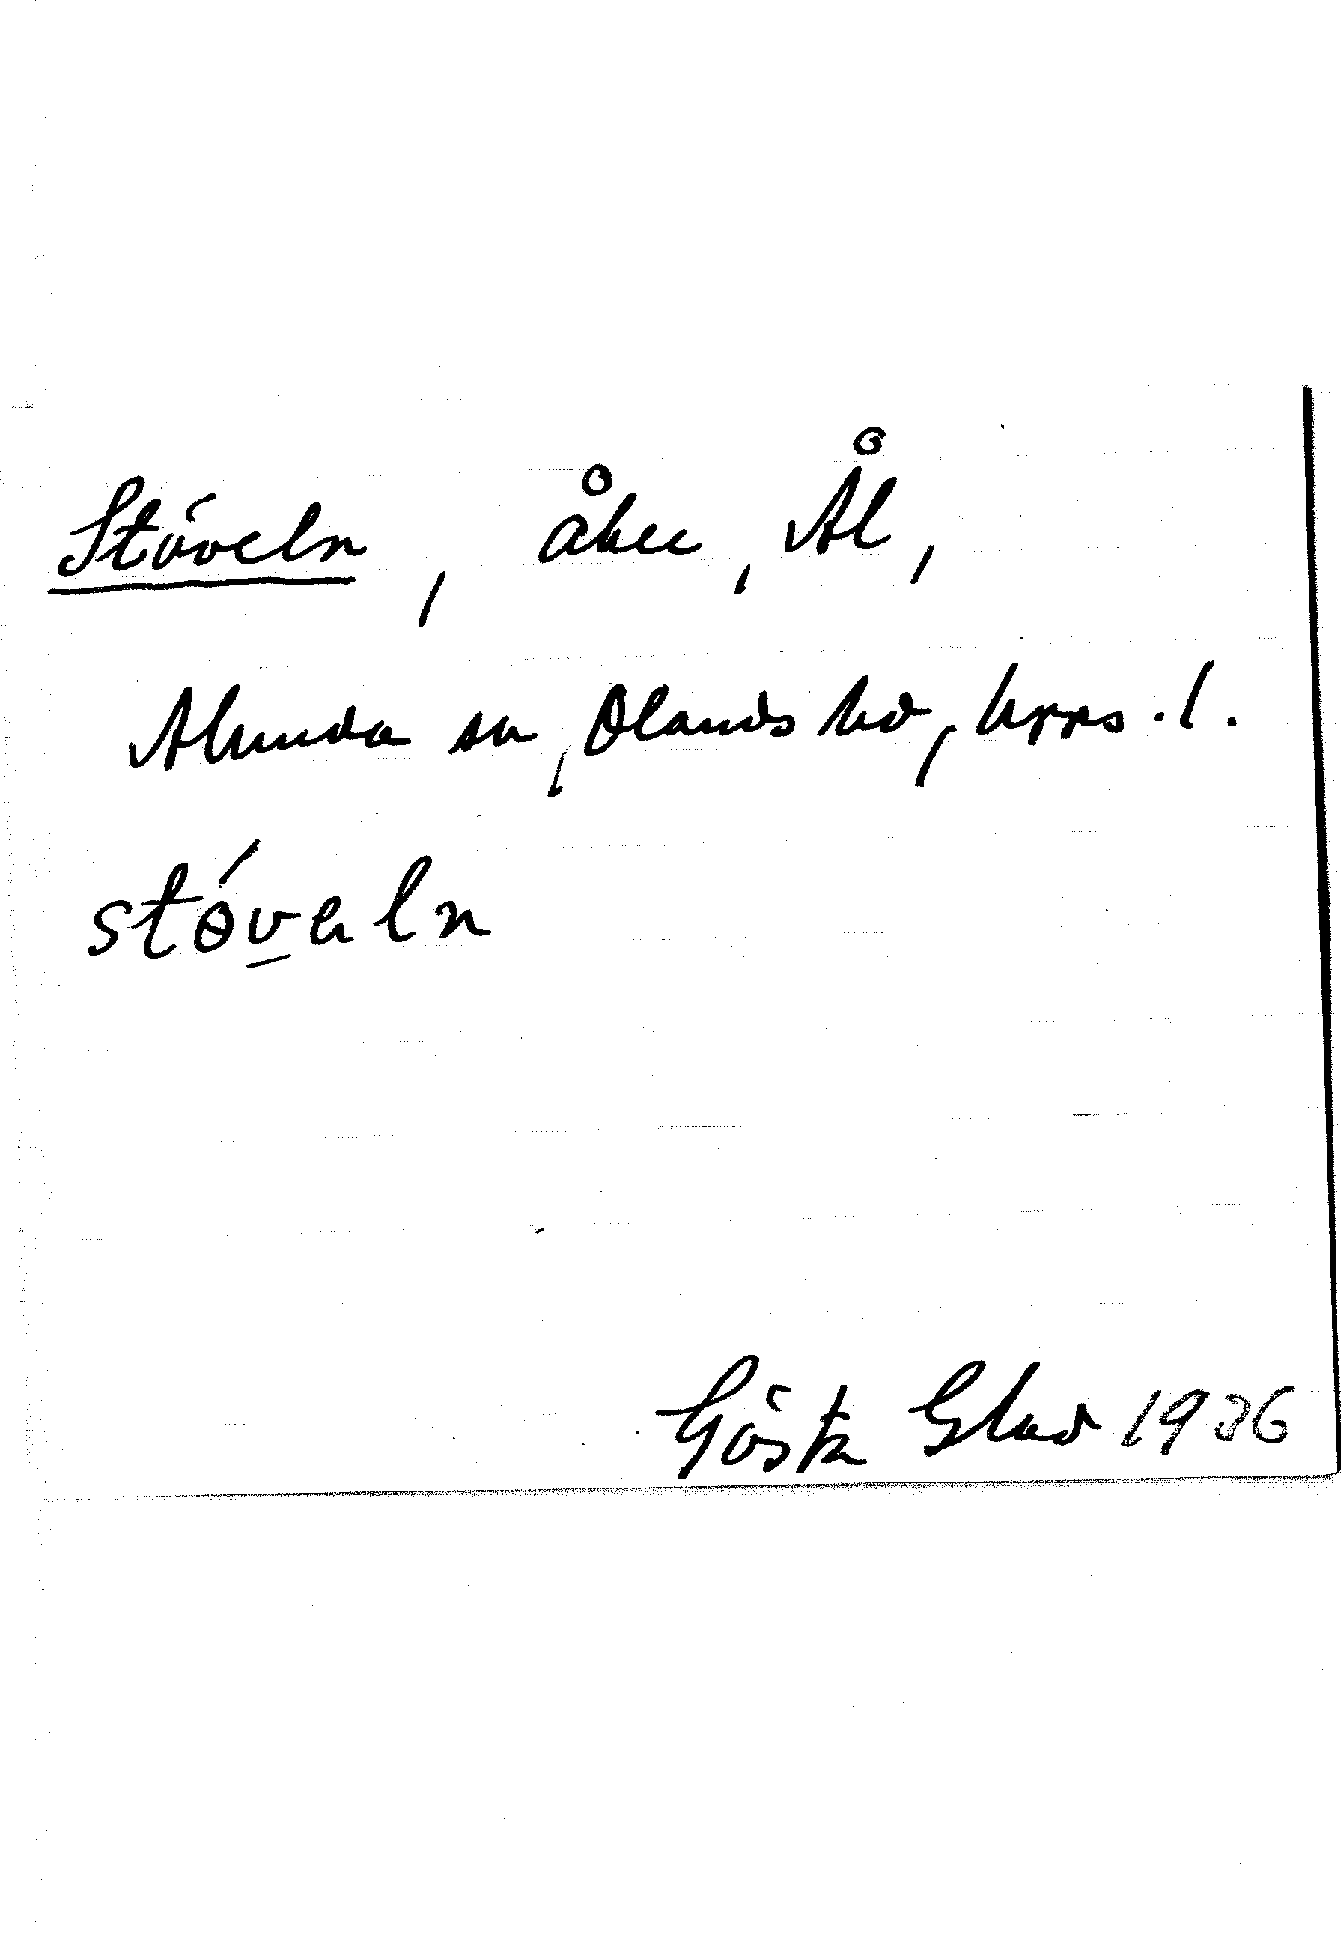 Stöveln, åker, Ål,
Alunda sn, Olands hd, Upps. l.
stǿvəln
Gösta Glad 1936